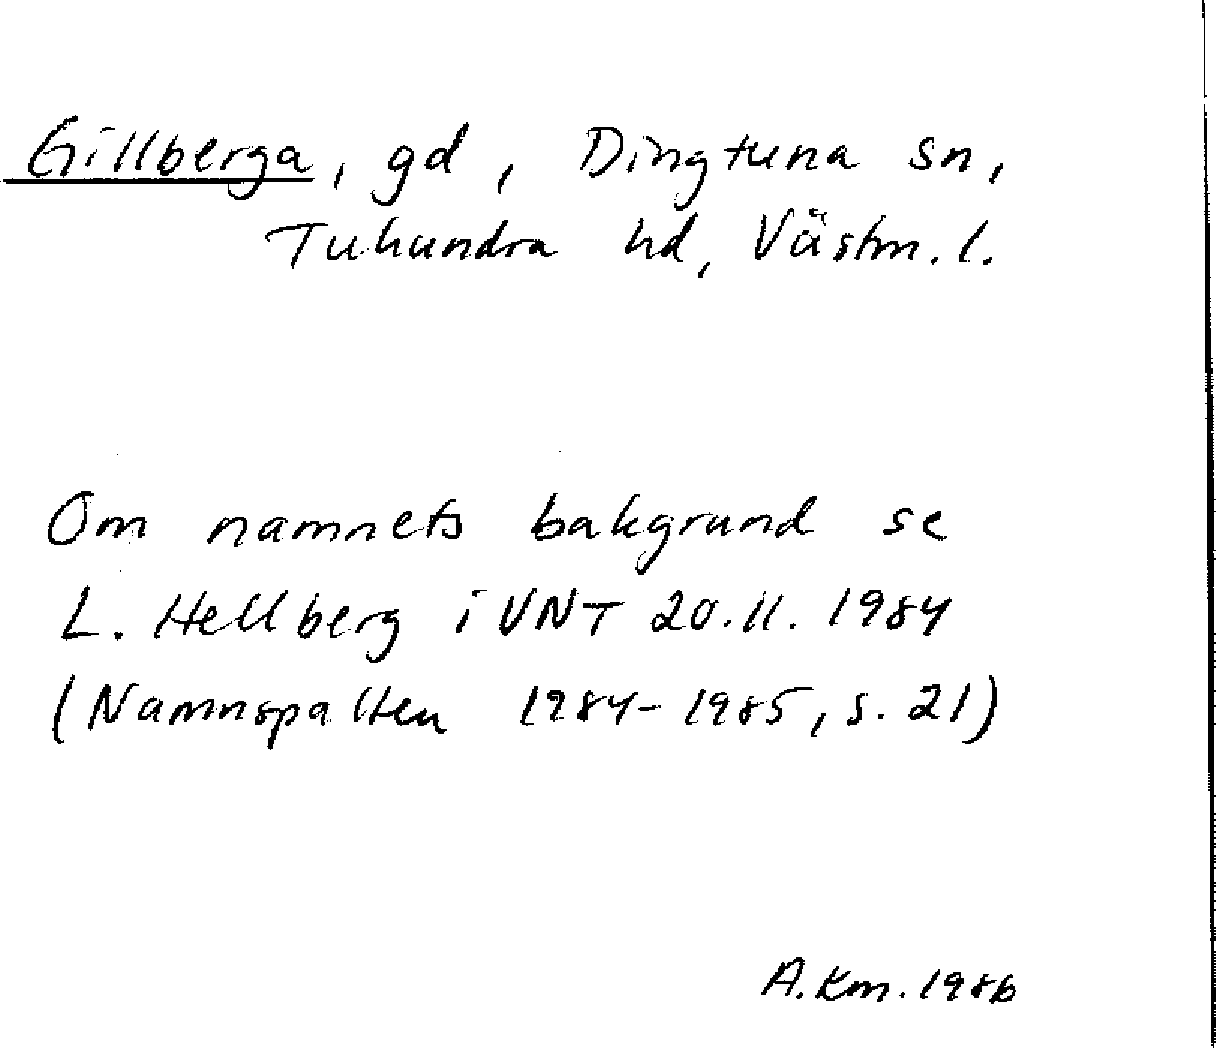 Gillberga, gd, Dingtuna sn,
Tuhundra hd, Västm. l.
Om namnets bakgrund se
L. Hellberg i VNT 20.11. 1984
(Namnspalten 1984-1985, s. 21)
A. Km. 1986